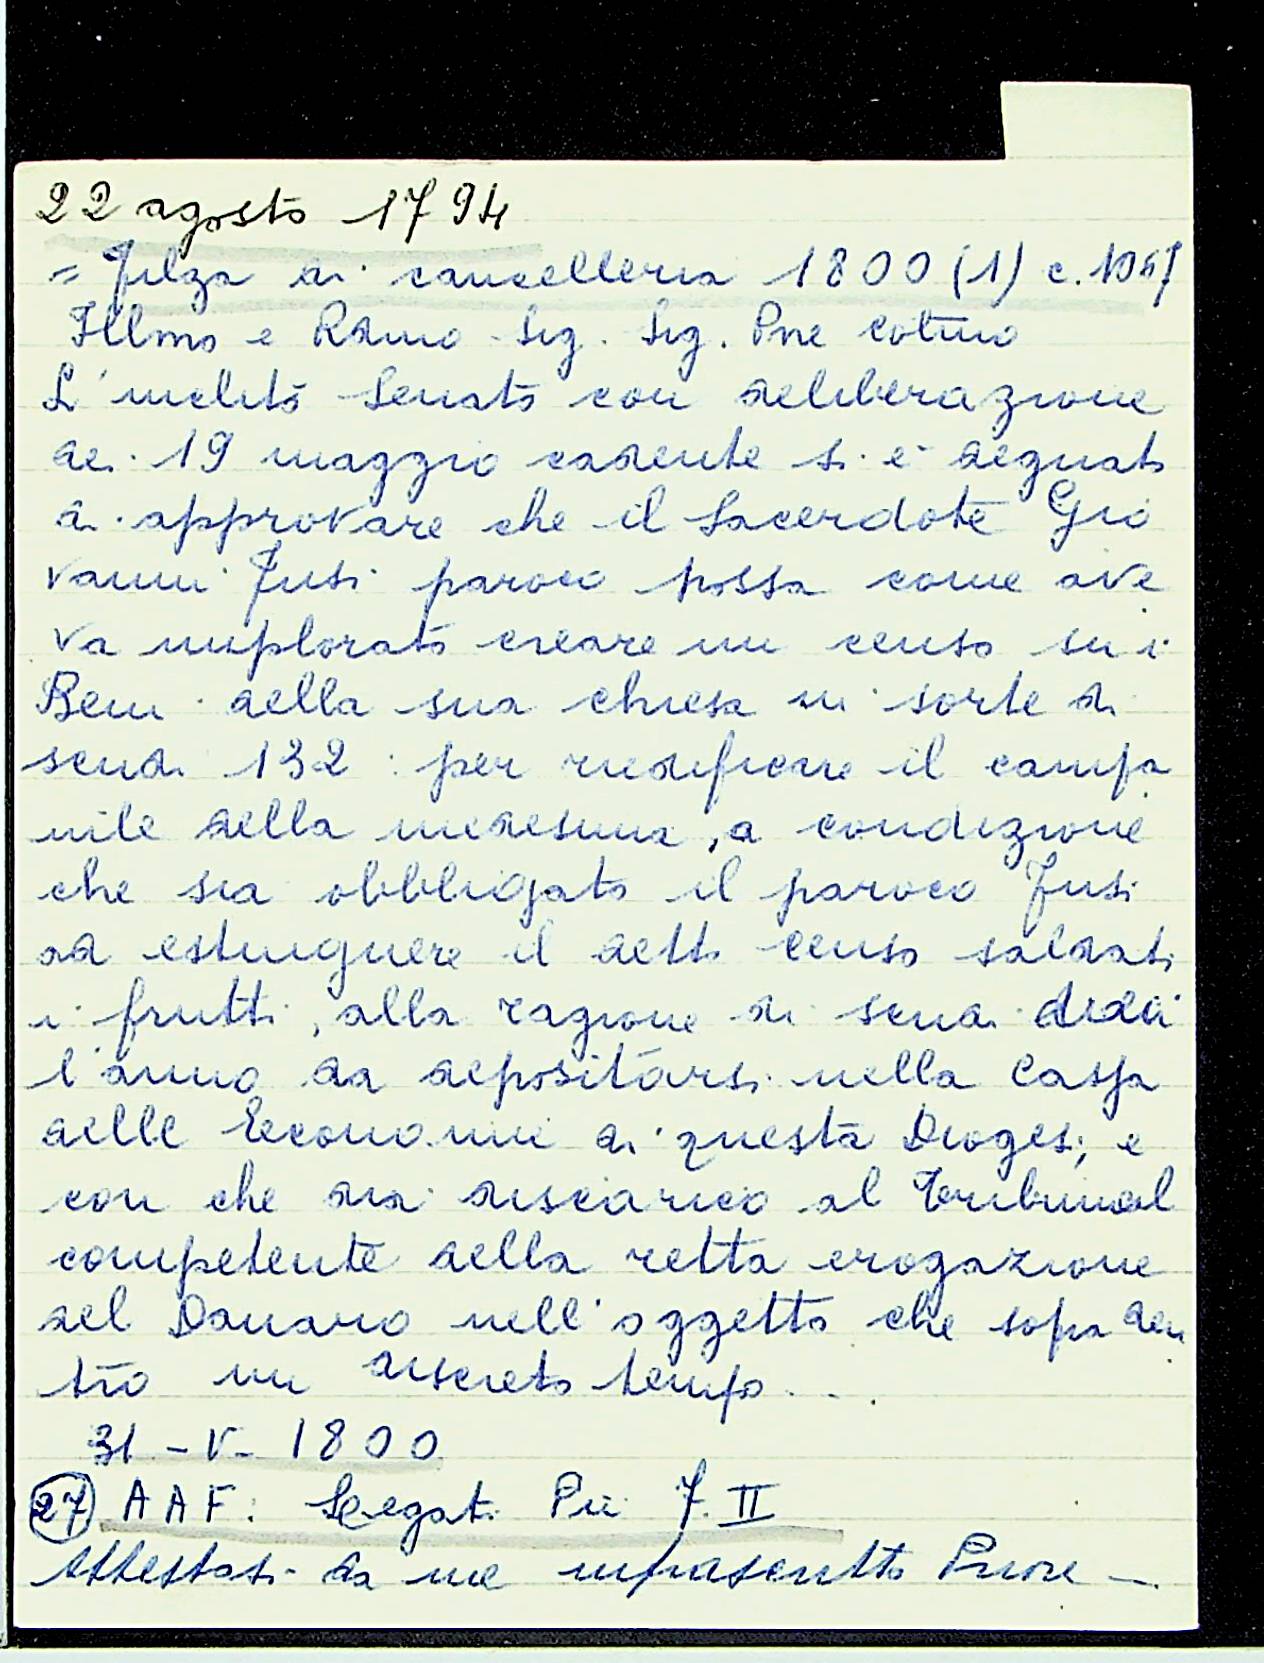 22 agosto 1794
= Filza di cancelleria 1800 (1) c.
Illmo e Rdmo Sig. Sig. Pne colmo
L'inclito Senato con deliberazione
dei 19 maggio cadente si è degnato
di approvare che il Sacerdote Gio
vanni Fusi paroco possa come ave
va implorato creare un censo su i
Beni della sua chiesa in sorte di
scudi 132 : per riedificare il campa
nile della medesima, a condizione
che sia obbligato il paroco Fusi
ad estinguere il detto censo saldati
i frutti, alla ragione di scudi dieci
l'anno da depositarsi nella Cassa
delle Economie di questa Diogesi, e
con che dia discarico al Tribunal
competente della retta erogazione
del Danaro nell'oggetto che sopra den
tro un discreto tempo ...
31 - V - 1800
27 AAF. Legati Pii F. II
Attestasi da me infrascritto Priore -